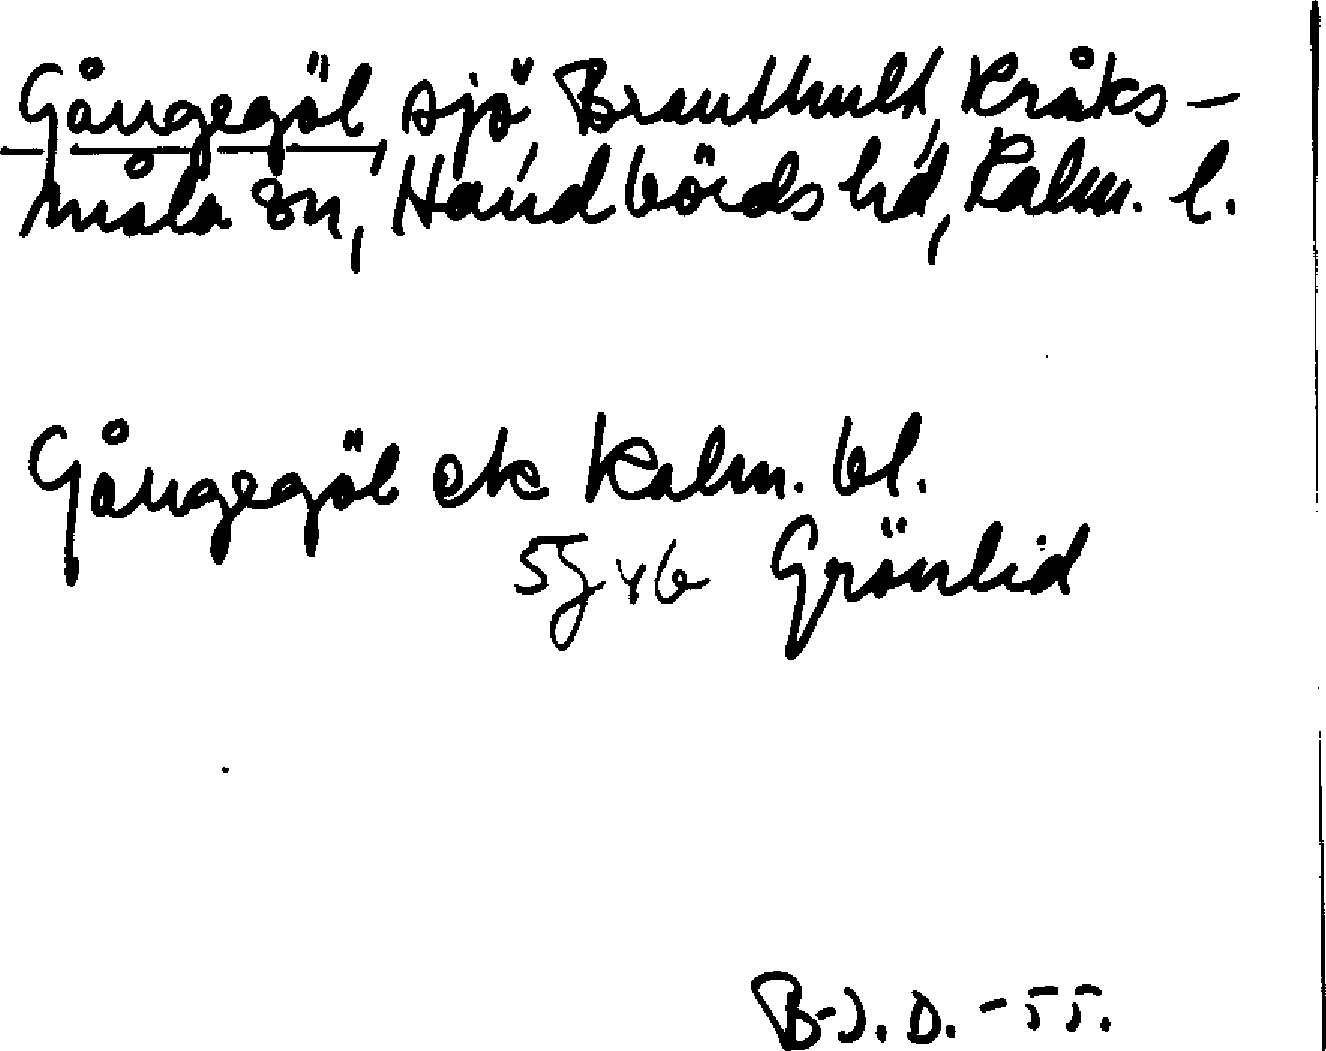 Gångegöl, sjö, Branthult, Kråks-
måla sn, Handbörds hd, Kalm. l.
Gångegöl ek Kalm. bl.
5J v6 Grönlid
B-J. D. -55.